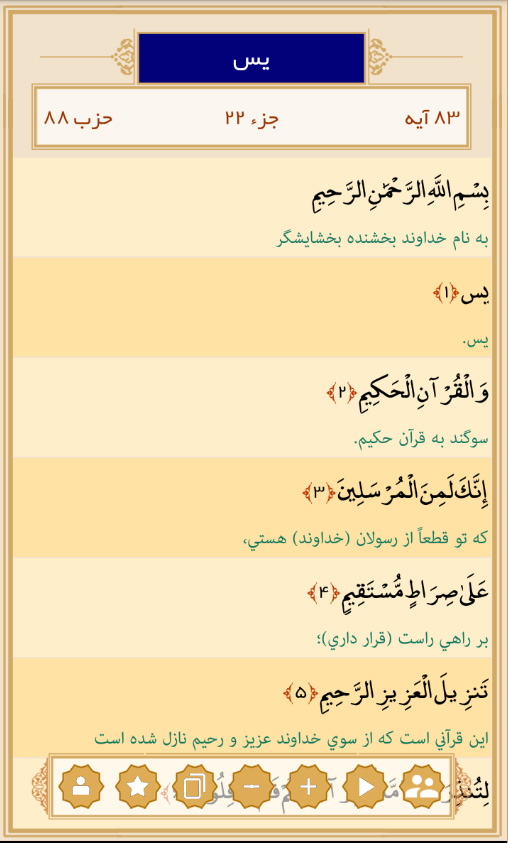 یس
۸۳ آیه
جزء ۲۲
حزب ۸۸
بِسْمِ اللَّهِ الرَّحْمَٰنِ الرَّحِيمِ
به نام خداوند بخشنده بخشایشگر
يس ﴿۱﴾
يس.
وَالْقُرْآنِ الْحَكِيمِ ﴿۲﴾
سوگند به قرآن حکیم.
إِنَّكَ لَمِنَ الْمُرْسَلِينَ ﴿۳﴾
که تو قطعاً از رسولان (خداوند) هستي،
عَلَىٰ صِرَاطٍ مُّسْتَقِيمٍ ﴿۴﴾
بر راهي راست (قرار داري)؛
تَنزِيلَ الْعَزِيزِ الرَّحِيمِ ﴿۵﴾
این قرآني است که از سوي خداوند عزیز و رحیم نازل شده است